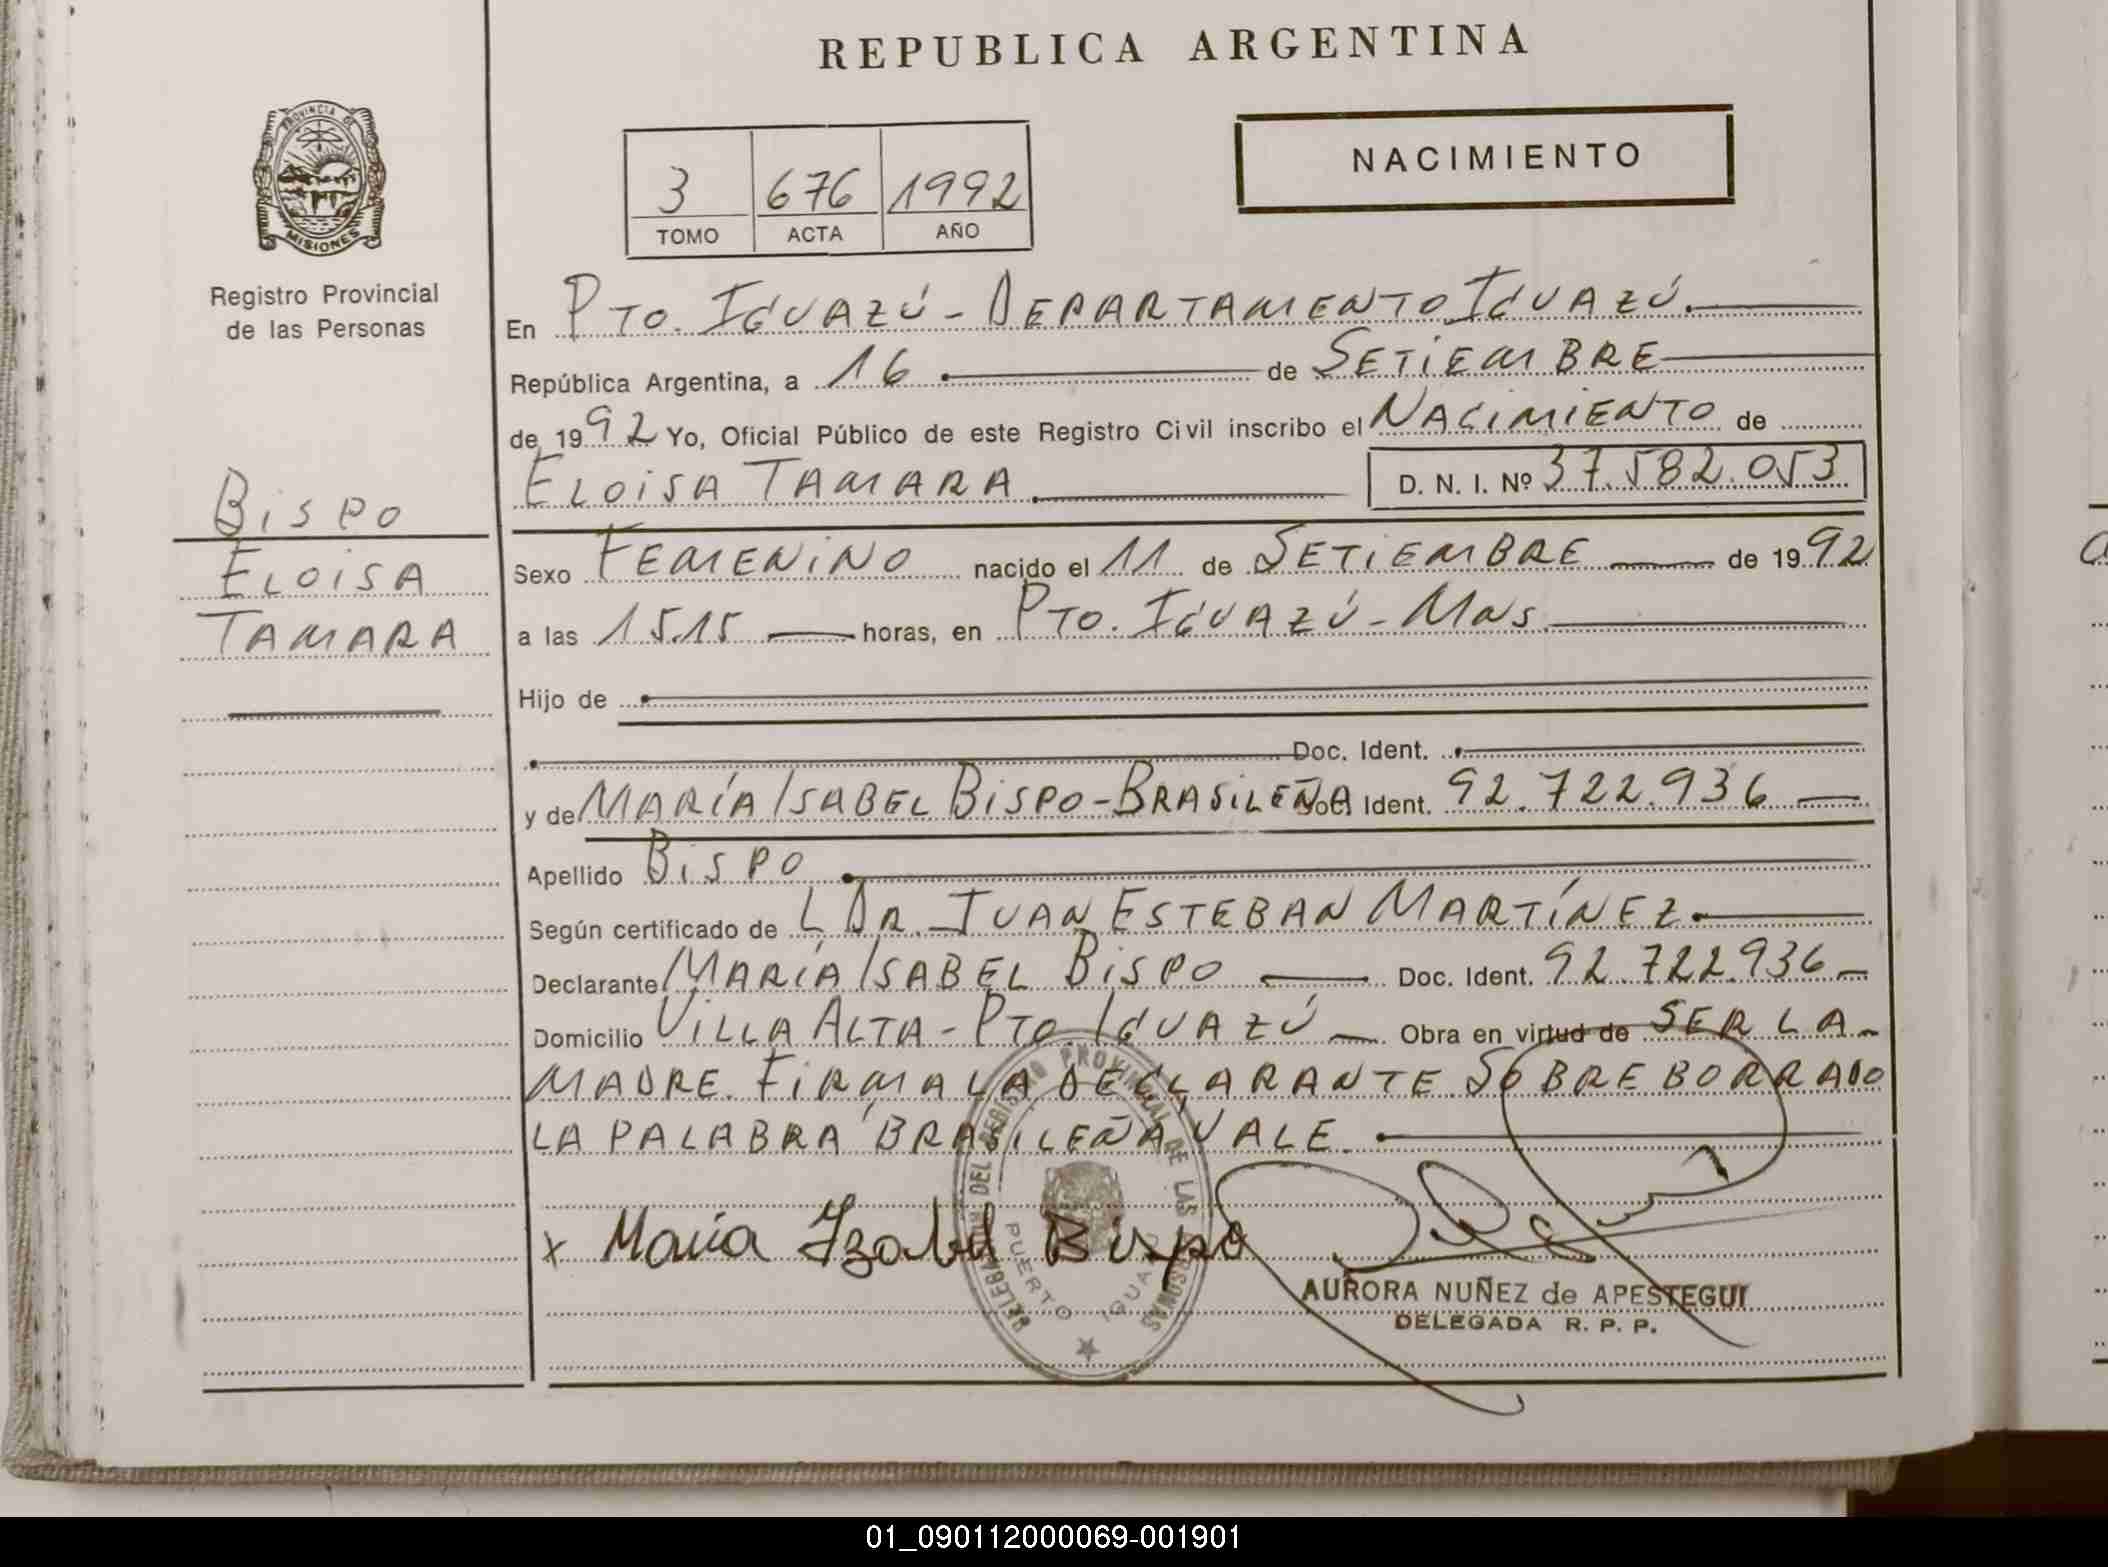 REPUBLICA ARGENTINA
PROVINCIA DE
MISIONES
Registro Provincial
de las Personas
NACIMIENTO
3 676 1992
TOMO ACTA AÑO
En PTO. IGUAZÚ - DEPARTAMENTO IGUAZÚ.
República Argentina, a 16 de SETIEMBRE
de 1992 Yo, Oficial Público de este Registro Civil inscribo el NACIMIENTO de
ELOISA TAMARA D. N. I. Nº 37.582.053
BISPO
ELOISA
TAMARA
Sexo FEMENINO nacido el 11 de SETIEMBRE de 1992
a las 15.15 horas, en PTO. IGUAZÚ - MNS.
Hijo de
Doc. Ident.
y de MARÍA ISABEL BISPO - BRASILEÑA Doc. Ident. 92.722.936
Apellido BISPO
Según certificado de L, DR. JUAN ESTEBAN MARTÍNEZ
Declarante MARÍA ISABEL BISPO Doc. Ident. 92.722.936
Domicilio VILLA ALTA - PTO. IGUAZÚ Obra en virtud de SER LA
MADRE. FIRMA LA DECLARANTE. SOBRE BORRADO
LA PALABRA BRASILEÑA, VALE.
DELEGACION DEL REGISTRO PROVINCIAL DE LAS PERSONAS
PUERTO IGUAZU
x Maria Izabel Bispo
AURORA NUÑEZ de APESTEGUI
DELEGADA R. P. P.
01_090112000069-001901